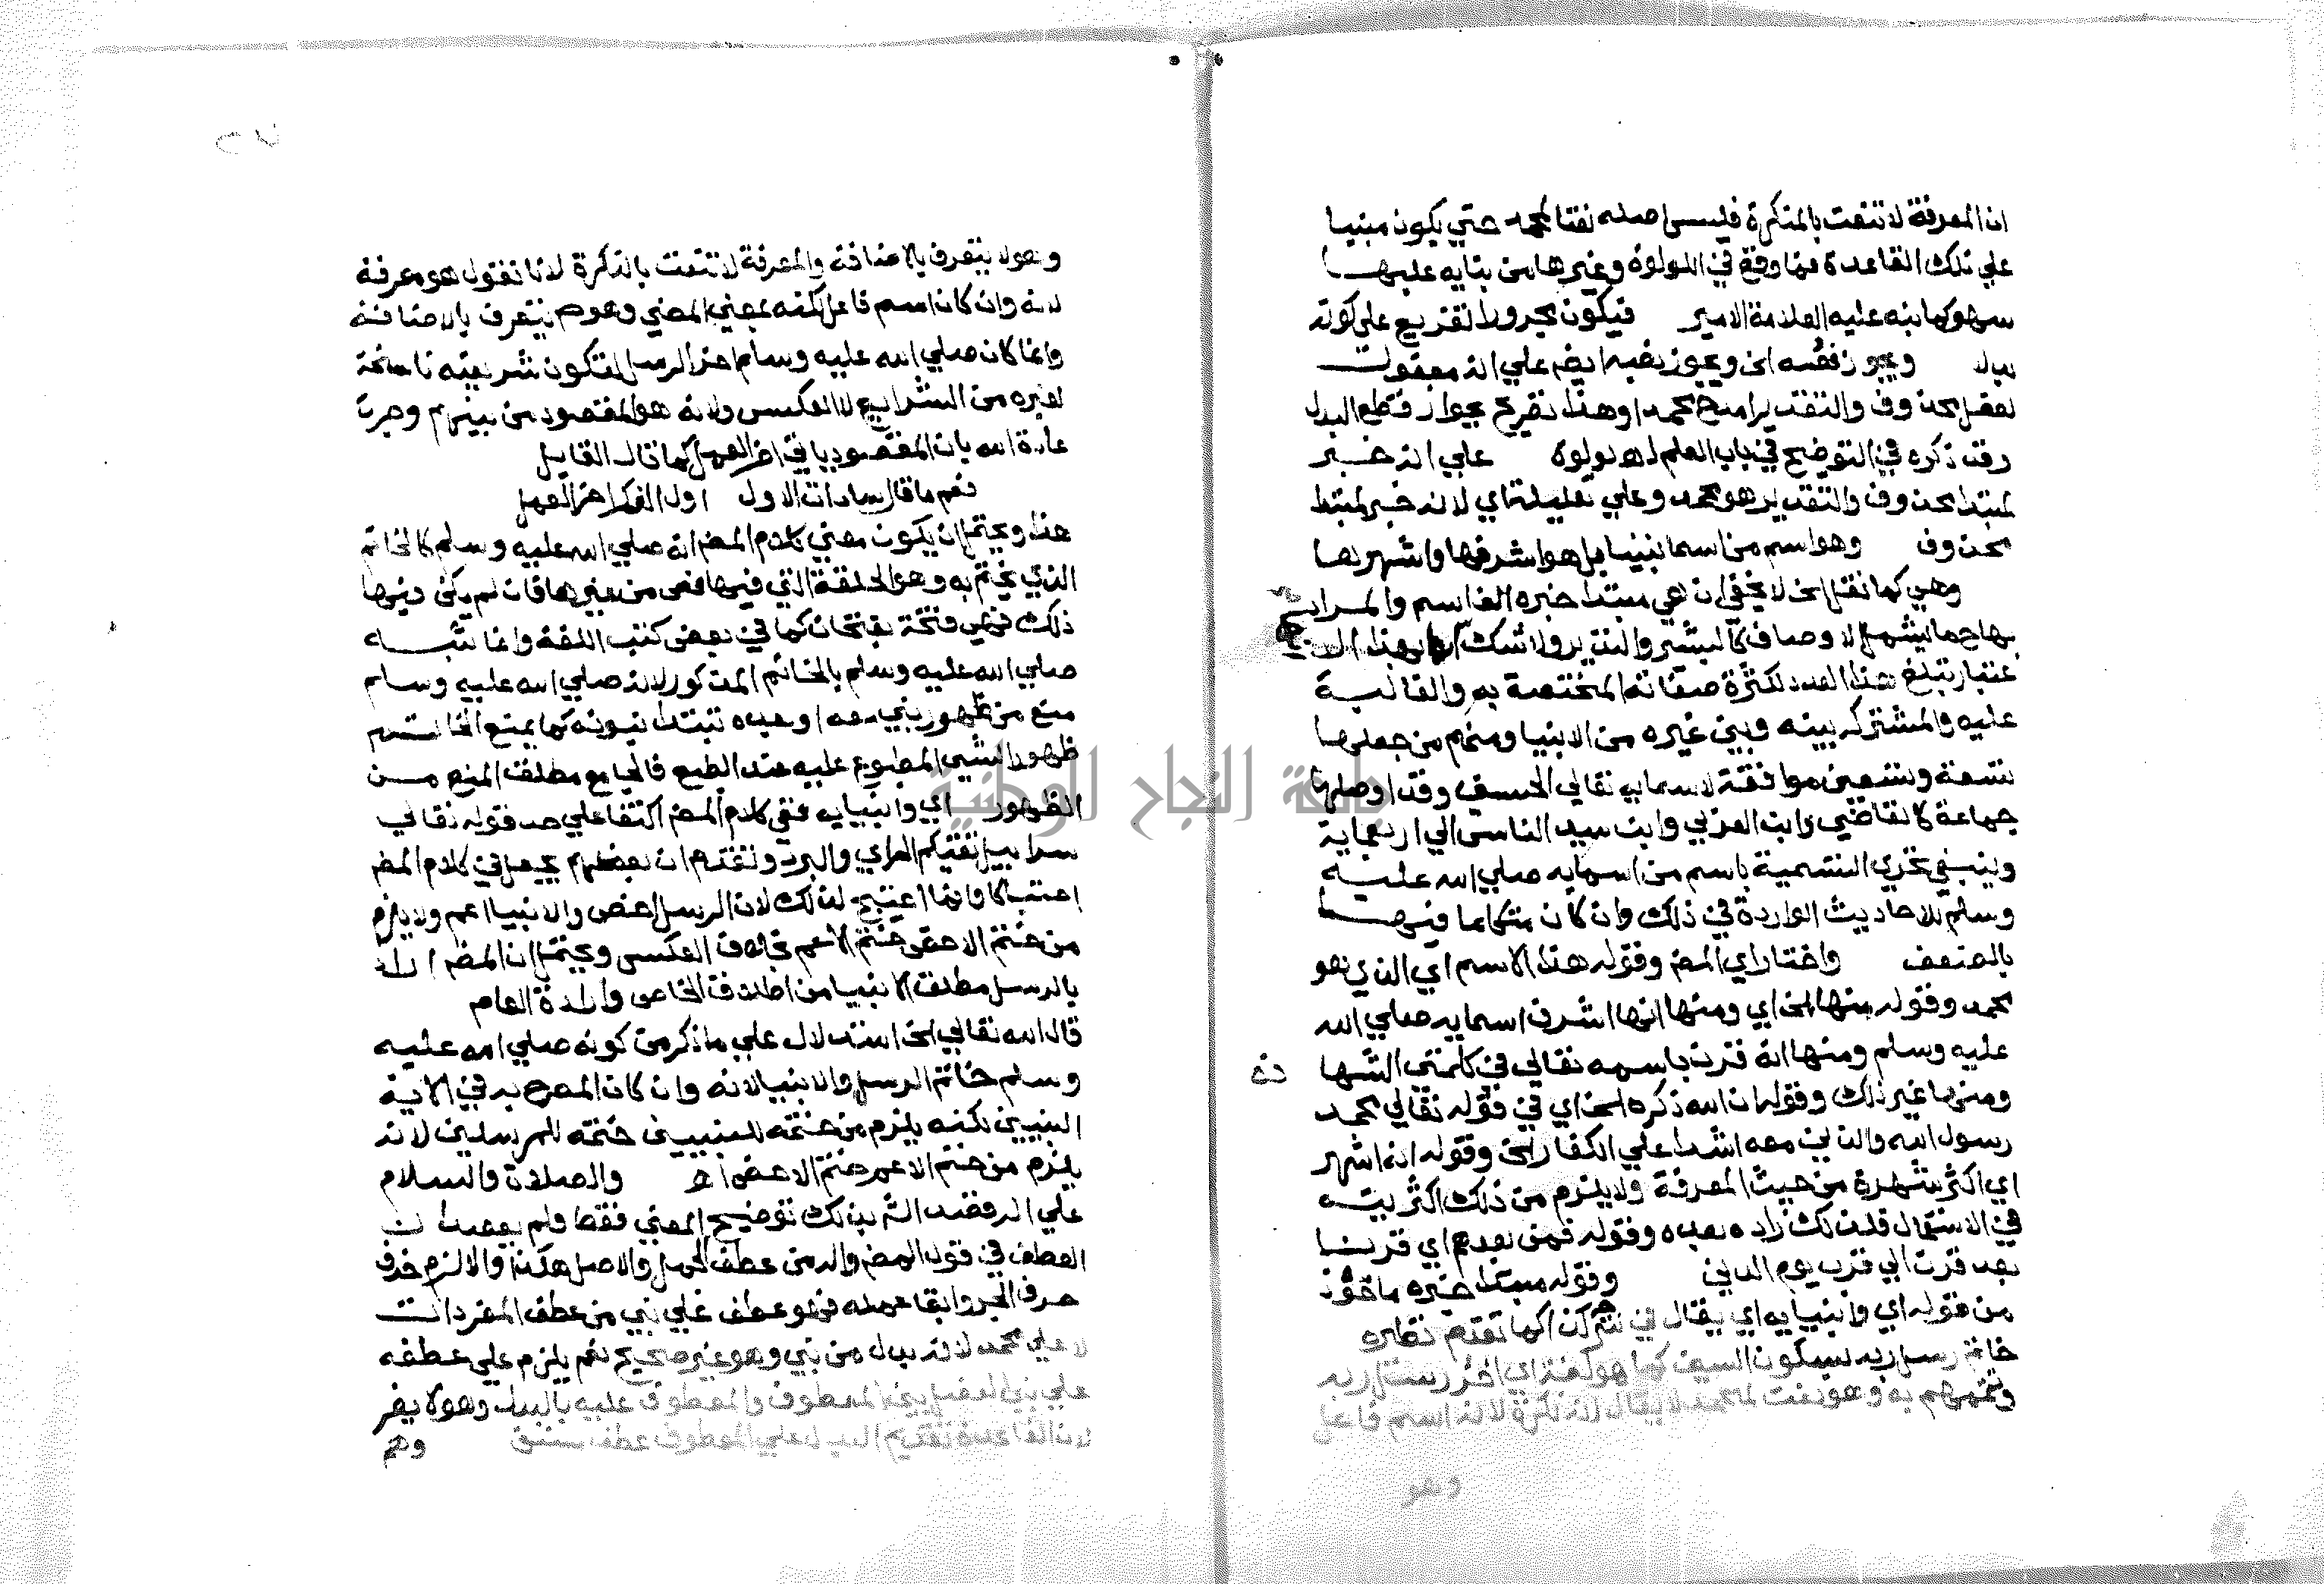 ان المعرفة لا تنعت بالنكرة فليس اصله نعتا لمحمد حتي يكون مبنيا
علي تلك القاعدة فما وقع في اللولوة وغيرها من بنايه عليها
سهو كما نبه عليه العلامة الامير فيكون مجرورا تفريع علي كونه
بدلا ويجوز رفعه الخ ويجوز نصبه ايضم علي انه مفعولــ
لفعل محذوف والتقدير امدح محمدا وهذا تفريع بجواز قطع البدل
وقد ذكره في التوضيح في باب العلم اهـ لولوة علي انه خبر
لمبتدا محذوف والتقدير هو محمد وعلي تعليلية اي لانه خبر لمبتدا
محذوف وهو اسم من اسما نبينا بل هو اشرفها واشهرها
وهي كما نقل الخ لا يخفي ان هي مبتدا خبره الف اسم والمراد
بها ما يشمل الاوصاف كالبشير والنذير ولا شك انها بهذا الا
عتبار تبلغ هذا العدد لكثرة صفاته المختصة به والغالبة
عليه والمشتركه بينه وبين غيره من الانبيا ومنهم من جعلها
تسعة وتسعين موافقة لاسمايه تعالي الحسني وقد اوصلها
جماعة كالقاضي وابن العربي وابن سيد الناس الي اربعماية
وينبغي تحري التسمية باسم من اسمايه صلي الله عليه
وسلم للاحاديث الواردة في ذلك وان كان متكلما فيها
بالضعف واختار اي المص وقوله هذا الاسم اي الذي هو
محمد وقوله منها الخ اي ومنها انها اشرف اسمايه صلي الله
عليه وسلم ومنها انه قرن باسمه تعالي في كلمتي الشها
دة
ومنها غير ذلك وقوله ان الله ذكره الخ اي في قوله تعالي محمد
رسول الله والذين معه اشدا علي الكفار الخ وقوله انه اشهر
اي اكثر شهرة من حيث المعرفة ولا يلزم من ذلك اكثريته
في الاستعمال فلذلك زاده بعده وقوله فمن بعدهم اي قرنا
بعد قرن الي قرب يوم الدين وقوله مبتدا خبره ماخوذ
من قوله اي وانبيايه اي يقال في كما تقدم نظيره
خاتم رسل ربه بسكون السين كما هو لغة اي اخر رسل ربه
وهو نعت لمحمد لا يقال انه نكرة لانه اسم فاعل
وهو
وهو لا يتعرف بالاضافة والمعرفة لا تنعت بالنكرة لانا نقول هو معرفة
لانه وان كان اسم فاعل لكنه بمعني المضي وهو ح يتعرف بالاضافة
وانما كان صلي الله عليه وسلم اخر الرسل لتكون شريعته ناسخة
لغيره من الشرايع لا العكس ولانه هو المقصود من بينهم وجرت
عادة الله بان المقصود ياتي اخر العمل كما قال القايل
نعم ما قال سادات الاول اول الفكر اخر العمل
هذا ويحتمل ان يكون معني كلام المص انه صلي الله عليه وسلم كالخاتم
الذي يختم به وهو الحلقة التي فيها فص من غيرها فان لم يكن فيها
ذلك فهي فتخة بفتحات كما في بعض كتب اللغة وانما شبه
صلي الله عليه وسلم بالخاتم المذكور لانه صلي الله عليه وسلم
منع من ظهور نبي معه او بعده تبتدا نبوته كما يمنع الخاتم
ظهور الشي المطبوع عليه عند الطبع فالجامع مطلق المنع من
الظهور اي وانبيايه ففي كلام المص اكتفا علي حد قوله تعالي
سرابيل تقيكم الحر اي والبرد وتقدم ان بعضهم يجعل في كلام المص
احتباكا وانما احتيج لذلك لان الرسل اخص والانبيا اعم ولا يلزم
من ختم الاخص ختم الاعم بخلاف العكس ويحتمل ان المص اراد
بالرسل مطلق الانبيا من اطلاق الخاص وارادة العام
قال الله تعالي الخ استدلال علي ما ذكر من كونه صلي الله عليه
وسلم خاتم الرسل والانبيا لانه وان كان المصرح به في الاية
النبيين لكنه يلزم من ختمه للنبيين ختمه للمرسلين لانه
يلزم من ختم الاعم ختم الاخص اهـ والصلاة والسلام
علي اله قصد الش بذلك توضيح المعني فقط ولم يقصد ان
العطف في قول المص واله من عطف الجمل والاصل هكذا والا لزم حذف
حرف الجر وابقا عمله فهو عطف علي نبي من عطف المفردات
لا علي محمد لانه بدل من نبي وهو غير صحيح نعم يلزم علي عطفه
علي نبي الفصل بين المعطوف والمعطوف عليه بالبدل وهو لا يضر
وهم